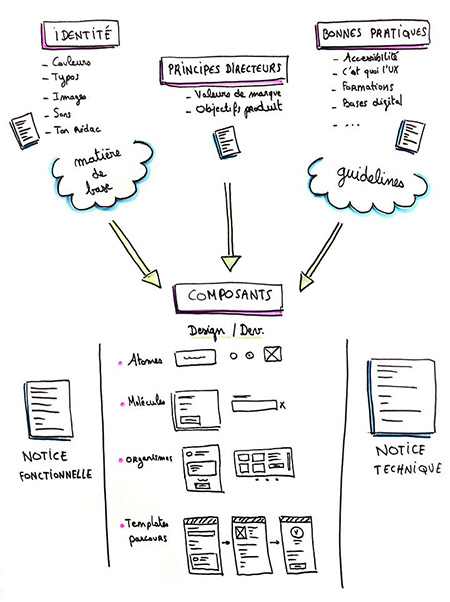 IDENTITÉ
- Couleurs
- Typos
- Images
- Sons
- Ton Rédac
matière
de
base
PRINCIPES DIRECTEURS
- Valeurs de marque
- Objectifs produit
BONNES PRATIQUES
- Accessibilité
- C'est quoi l'UX
- Formations
- Bases digital
- ...
guidelines
COMPOSANTS
Design / Dev.
NOTICE
FONCTIONNELLE
• Atomes
• Molécules
• ORGANISMES
• Templates
parcours
NOTICE
TECHNIQUE